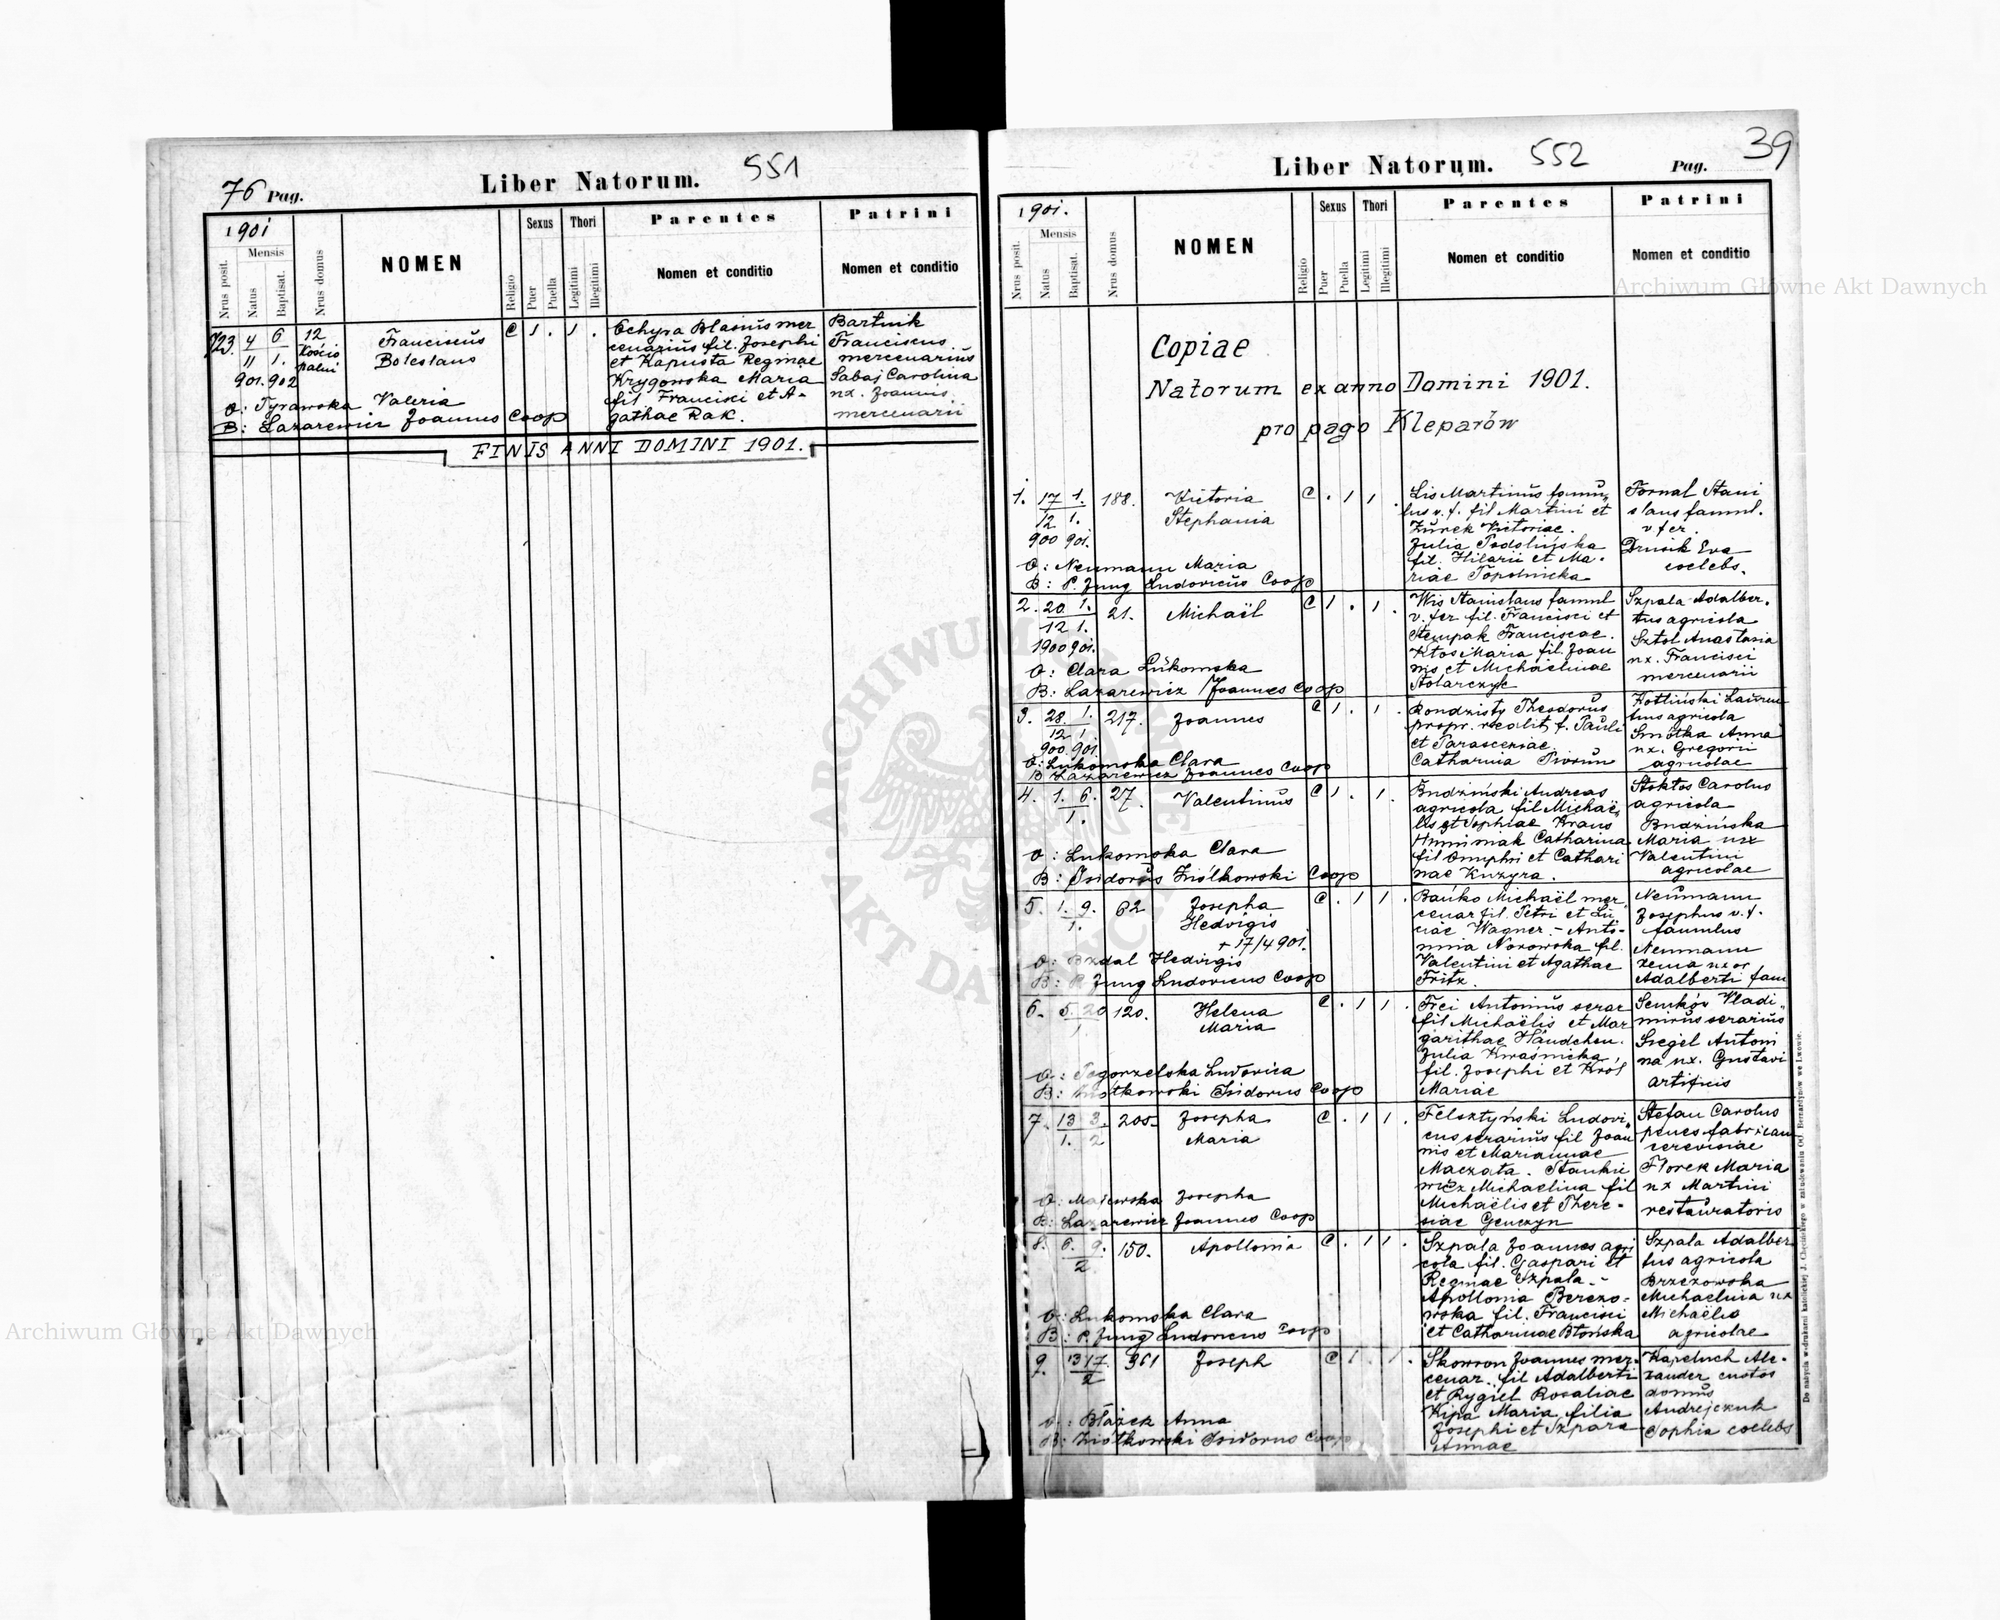 76 Pag.
Liber Natorum.
551
1901
Mensis
Nrus posit.
Natus
Baptisat.
Nrus domus
NOMEN
Religio
Sexus
Puer
Puella
Thori
Legitimi
Illegitimi
Parentes
Nomen et conditio
Patrini
Nomen et conditio
723. 4 6 12
11 1.
901. 902
Franciscus
Boleslaus
C 1 . 1 .
Blasius mer
cenarius fil. Josephi
et Kapusta Reginae
Krygowska Maria
fil Francisci et A-
gathae Rak.
Bartnik
Franciscus
mercenarius
Sabaj Carolina
ux. Joannis
mercenarii
O: Tyrawska Valeria
B: Lazarewicz Joannes Coop
FINIS ANNI DOMINI 1901.
Liber Natorum.
552
Pag.
39
1901.
Mensis
Nrus posit.
Natus
Baptisat.
Nrus domus
NOMEN
Religio
Sexus
Puer
Puella
Thori
Legitimi
Illegitimi
Parentes
Nomen et conditio
Patrini
Nomen et conditio
Copiae
Natorum ex anno Domini 1901.
pro pago Kleparów
1. 17 1. 188.
12 1.
900 901.
Victoria
Stephania
C . 1 1 .
Lis Martinus famu„
lus v. f. fil Martini et
Żurek Victoriae.
Julia
fil. Hilarii et Ma-
riae Topolnicka
Fornal Stani
slaus famul.
v fer.
Drusik Eva
coelebs.
O: Neumann Maria
B: P. Jung Ludovicus Coop
2. 20 1. 21.
12 1.
1900 901.
Michaël
C 1 . 1 .
Wis Stanislaus famul
v. fer fil. Francisci et
Stempak Franciscae.
Ktos Maria fil. Joan
nis et Michaëlinae
Stolarczyk
Szpala Adalber.
tus agricola
Sztol Anastasia
ux. Francisci
mercenarii
O: Clara Łukomska
B: Lazarewicz Joannes Coop
3. 28. 1. 217.
12 1
900. 901
Joannes
C 1 . 1 .
Theodorus
propr. realit. f. Pauli
et Parasceviae.
Catharina Piorun
agricola
Smotka Anna
ux. Gregorii
agricolae
O: Łukomska Clara
B Lazarewicz Joannes Coop
4. 1. 6. 27.
1.
Valentinus
C 1 . 1 .
Budziński Andreas
agricola fil Michaë„
lis et Sophiae Kraus
Catharina
fil Onuphri et Cathari
nae Kuzyra.
Stoktos Carolus
agricola
Budzińska
Maria ux
Valentini
agricolae
O: Łukomska Clara
B: Isidorus Ziółkowski Coop
5. 1. 9. 62
1.
Josepha
Hedvigis
+ 17/4 901.
C . 1 1 .
Bańko Michaël mer
cenar fil. Petri et Lu
ciae Wagner. - Anto-
nina Nosowska fil.
Valentini et Agathae
Fritz.
Neumann
Josephus v. f.
famulus
Neumann
uxor
Adalberti fam
O: Bzdal Hedvigis
B: P. Jung Ludovicus Coop
6. 5. 20 120.
1.
Helena
Maria
C . 1 1 .
Frei Antonius serar
fil Michaëlis et Mar
garithae
Julia Kwaśnicka
fil. Josephi et Król
Mariae
Senków Vladi„
mirus serarius
Siegel Antoni
na ux. Gustavi
artificis
O: Pogorzelska Ludovica
B: Ziółkowski Isidorus Coop
7. 13 3. 205.
1. 2
Josepha
Maria
C . 1 1 .
Felsztyński Ludovi„
cus serarius fil Joan
nis et Mariannae
Maczata. Stankie
wicz Michaëlina fil
Michaëlis et There-
siae Genczyn
Stefan Carolus
penes fabricam
cerevisiae
Florek Maria
ux Martini
restauratoris
O: Majewska Josepha
B: Lazarewicz Joannes Coop
8. 6. 9. 150.
2.
Apollonia
C . 1 1 .
Szpala Joannes agri
cola fil. Gaspari et
Reginae Szpala.-
Apollonia Berezo-
wska fil. Francisci
et Catharinae Błońska
Szpala Adalber
tus agricola
Brzezowska
Michaëlina ux
Michaëlis
agricolae
O: Łukomska Clara
B: P. Jung Ludovicus Coop
9. 13 17. 361
2
Joseph
C 1 . 1 .
Skowron Joannes mer-
cenar. fil Adalberti
et Rygiel Rosaliae
Kipa Maria filia
Josephi et Szpara
Annae
Kapeluch Ale-
xander custos
domus
Andrejczuk
Sophia coelebs
O: Błażek Anna
B: Ziółkowski Isidorus Coop
Archiwum Główne Akt Dawnych
Archiwum Główne Akt Dawnych